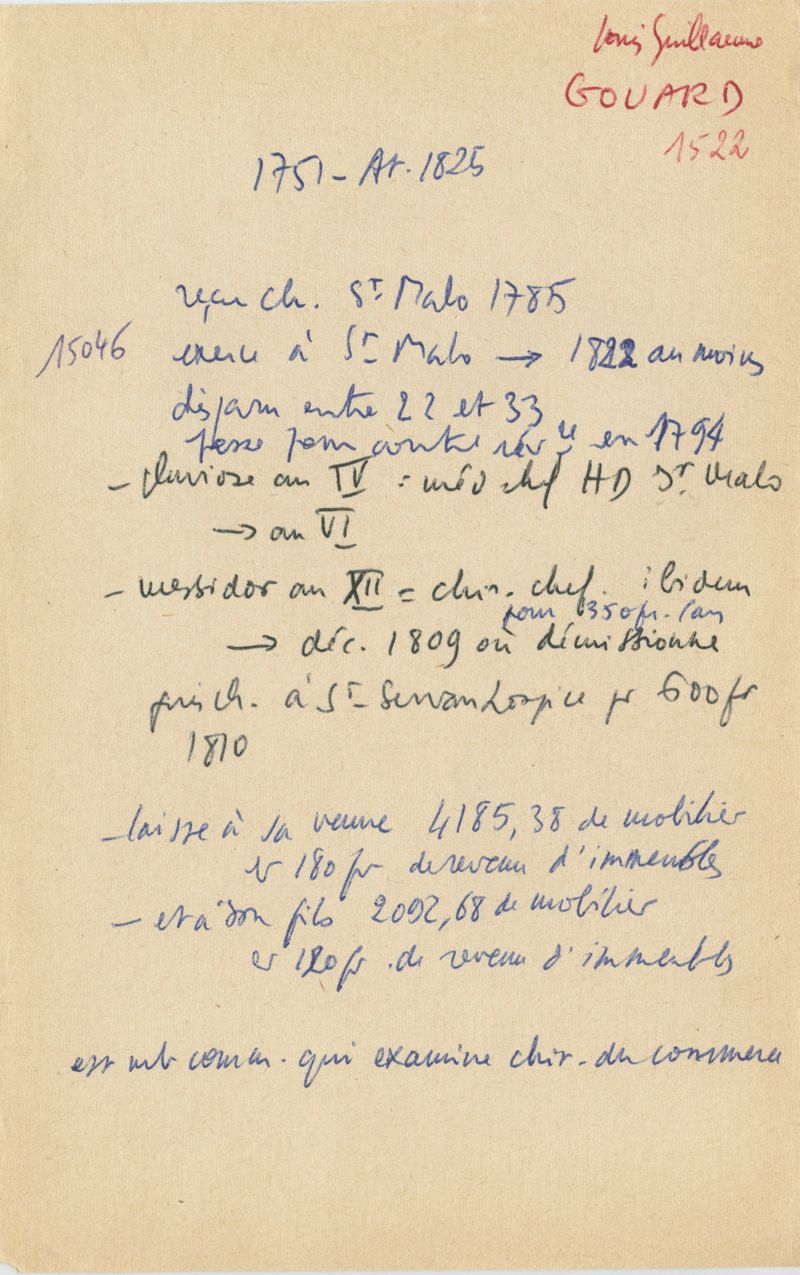 Louis Guillaume
GOUARD
1522
1751 - At. 1825
reçu ch. St Malo 1785
15046 exerce à St Malo → 1822 au moins
disparu entre 22 et 33
passe pour contre rév.re en 1794
- pluviose an IV = méd chef HD St Malo
→ an VI
- messidor an XII = chir. chef. ibidem
pour 350 fr. / an
→ déc. 1809 où démissionne
puis ch. à St-Servan hospice pr 600 fr
1810
- laisse à sa veuve 4185,38 de mobilier
et 180 fr de revenu d'immeubles
- et à son fils 2092,68 de mobilier
et 120 fr. de revenu d'immeubles
est mb comm. qui examine chir. du commerce